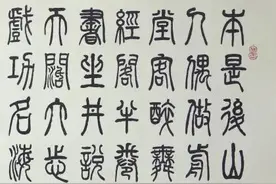 本是後山
人偶做前
堂客醉舞
經閣半卷
書坐井說
天闊大志
戲功名海